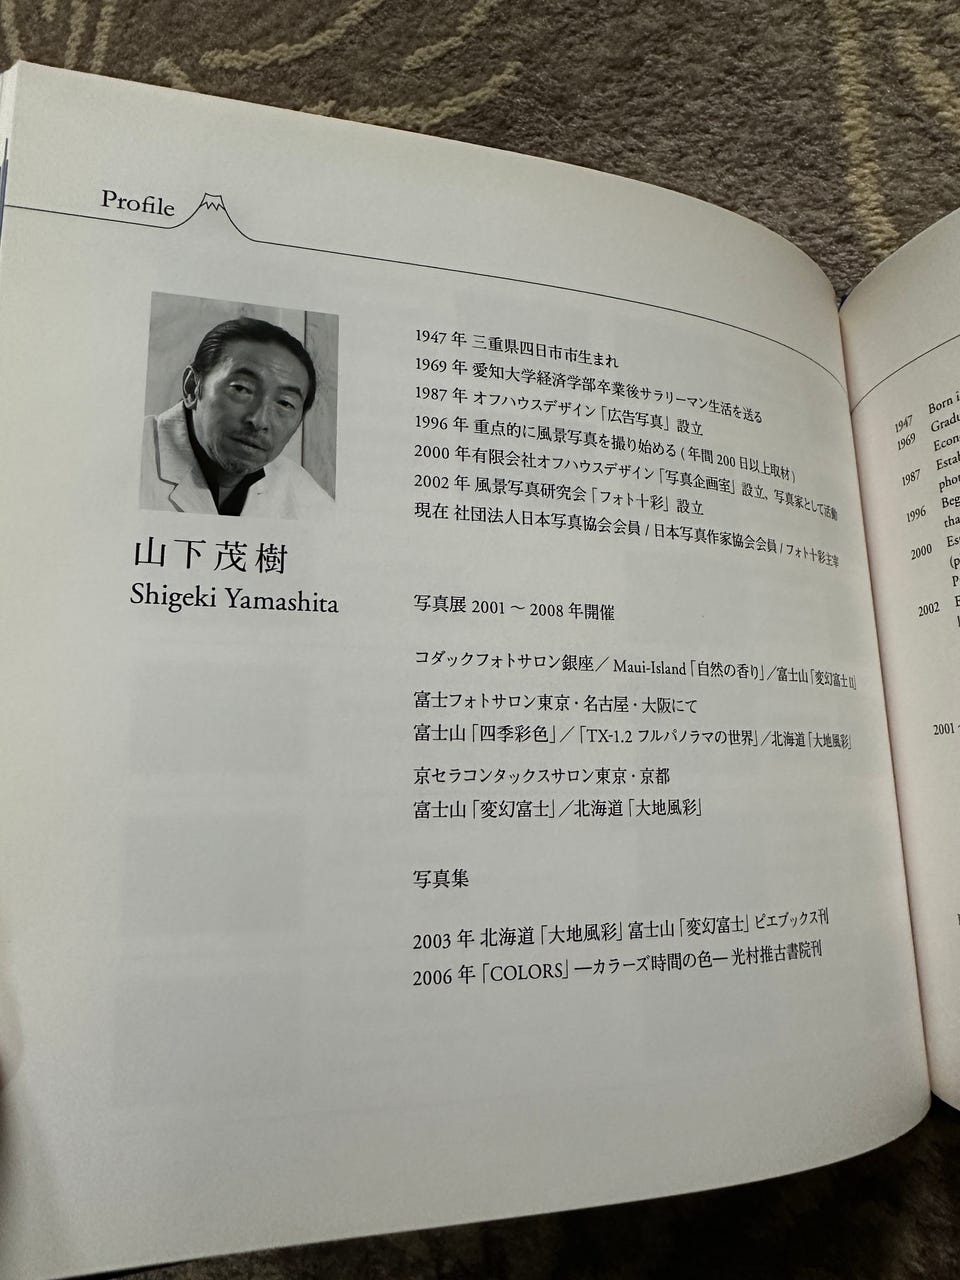 Profile
山下茂樹
Shigeki Yamashita
1947 年 三重県四日市市生まれ
1969 年 愛知大学経済学部卒業後サラリーマン生活を送る
1987 年 オフハウスデザイン「広告写真」設立
1996 年 重点的に風景写真を撮り始める ( 年間 200 日以上取材 )
2000 年有限会社オフハウスデザイン「写真企画室」設立、写真家として活動
2002 年 風景写真研究会「フォト十彩」設立
現在 社団法人日本写真協会会員 / 日本写真作家協会会員 / フォト十彩主宰
写真展 2001 ～ 2008 年開催
コダックフォトサロン銀座／ Maui-Island「自然の香り」／富士山「変幻富士 II」
富士フォトサロン東京・名古屋・大阪にて
富士山「四季彩色」／「TX-1.2 フルパノラマの世界」／北海道「大地風彩」
京セラコンタックスサロン東京・京都
富士山「変幻富士」／北海道「大地風彩」
写真集
2003 年 北海道「大地風彩」富士山「変幻富士」ピエブックス刊
2006 年「COLORS」―カラーズ時間の色― 光村推古書院刊
1947 Born
1969
1987
1996
2000
2002
2001